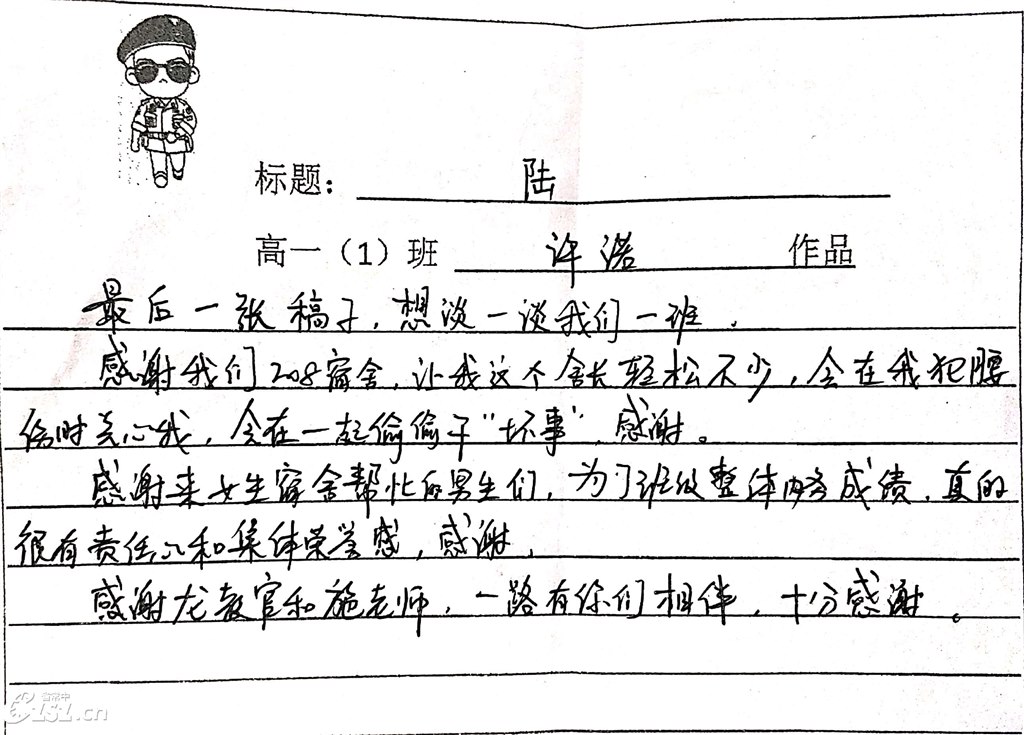 标题： 陆
高一（1）班 许诺 作品
最后一张稿子，想谈一谈我们一班。
感谢我们208宿舍，让我这个舍长轻松不少，会在我犯腰
伤时关心我，会在一起偷偷干“坏事”，感谢。
感谢来女生宿舍帮忙的男生们，为了班级整体内务成绩，真的
很有责任心和集体荣誉感，感谢，
感谢龙教官和施老师，一路有你们相伴，十分感谢。
1S1.cn